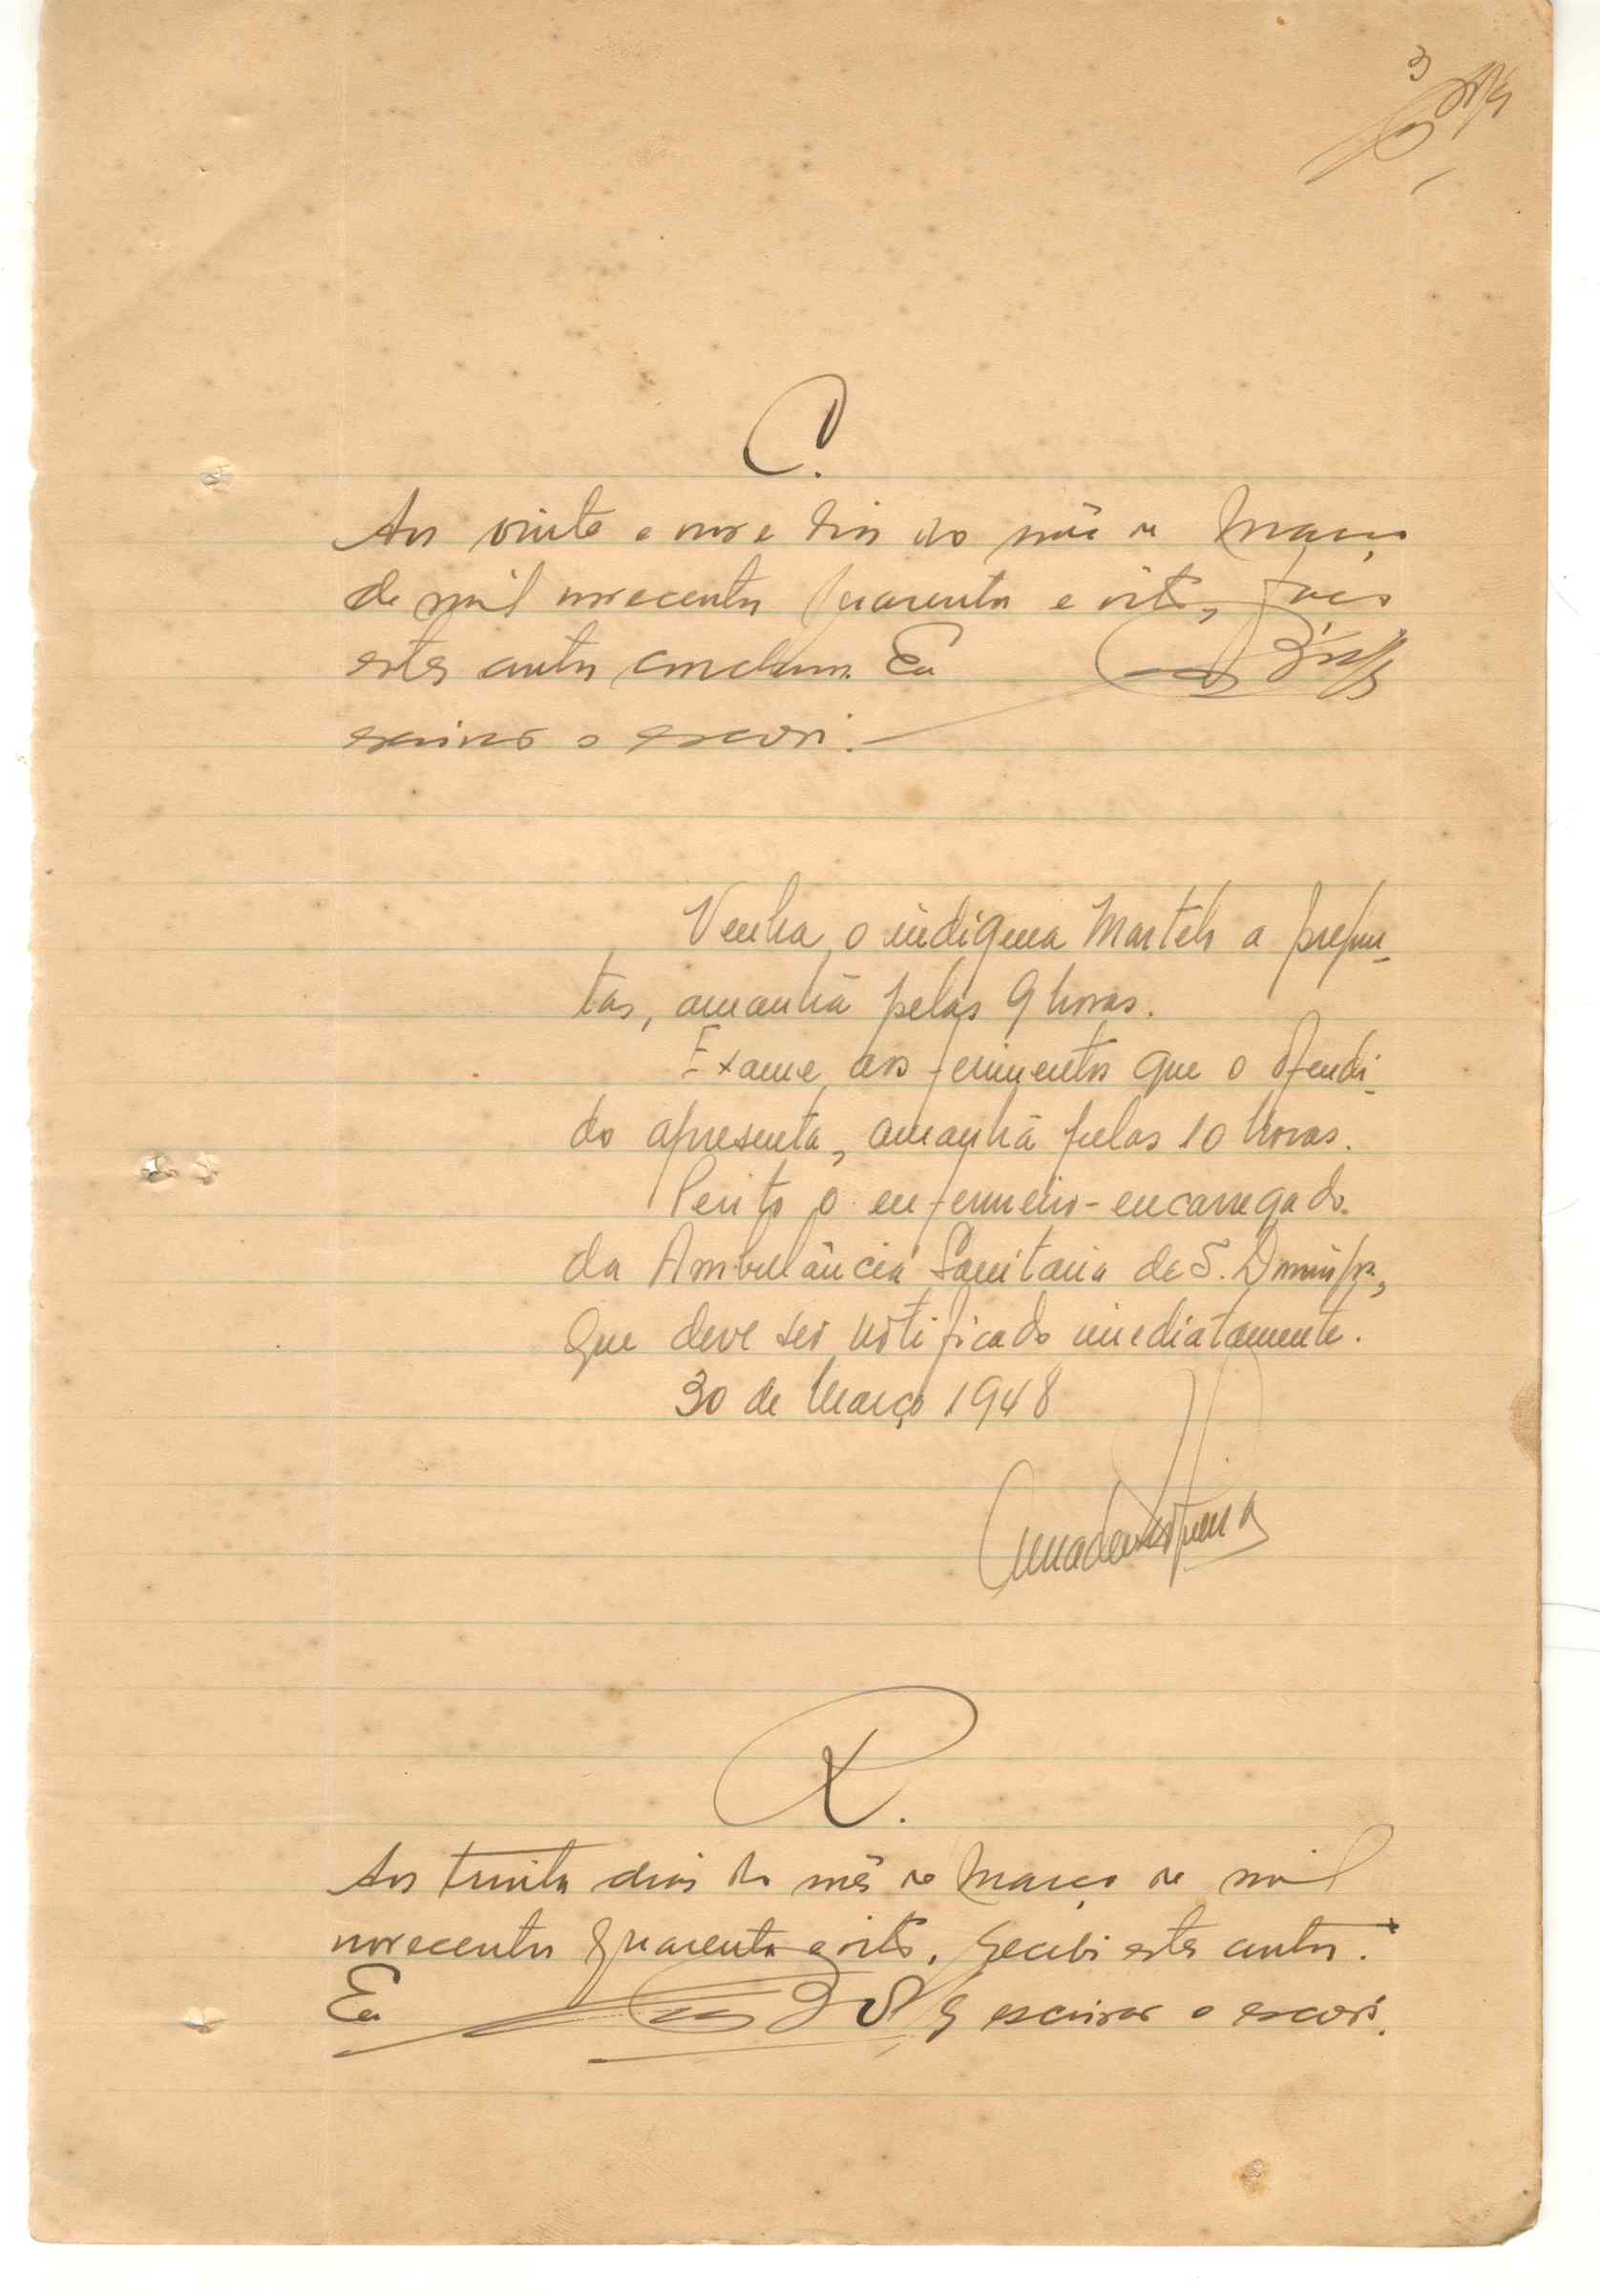 3
C.
Aos vinte e nove dias do mês de Março
de mil novecentos quarenta e oito, faço
estes autos conclusos. Eu
escrivão o escrevi.
Venha o indígena Martelo a pregun-
tas, amanhã pelas 9 horas.
Exame aos ferimentos que o ofendi-
do apresenta, amanhã pelas 10 horas.
Perito o enfermeiro-encarregado
da Ambulância Sanitaria de S. Domingos,
que deve ser notificado imediatamente.
30 de Março 1948
R.
Aos trinta dias do mês de Março de mil
novecentos quarenta e oito, recebi estes autos.
Eu escrivão o escrevi.